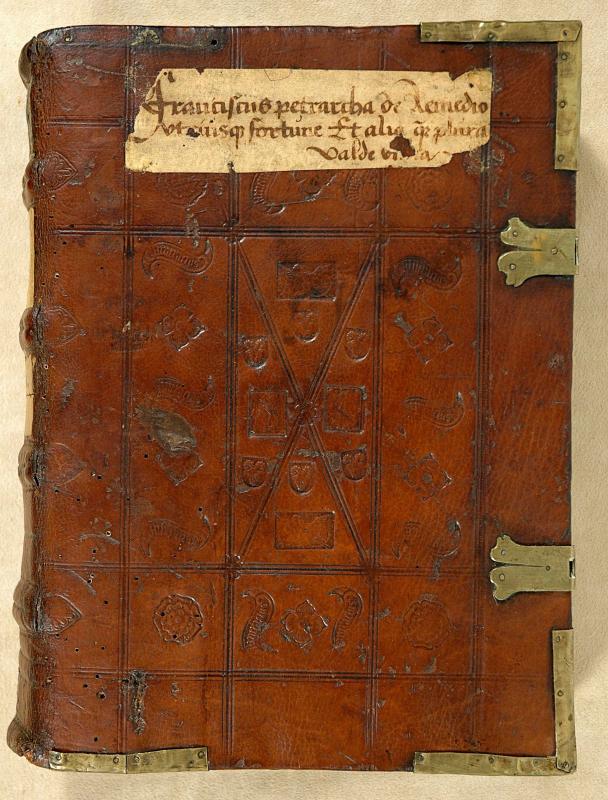 Franciscus petrarcha de Remedio
vtriusq fortune Et alia q̄ plura
valde vtilia